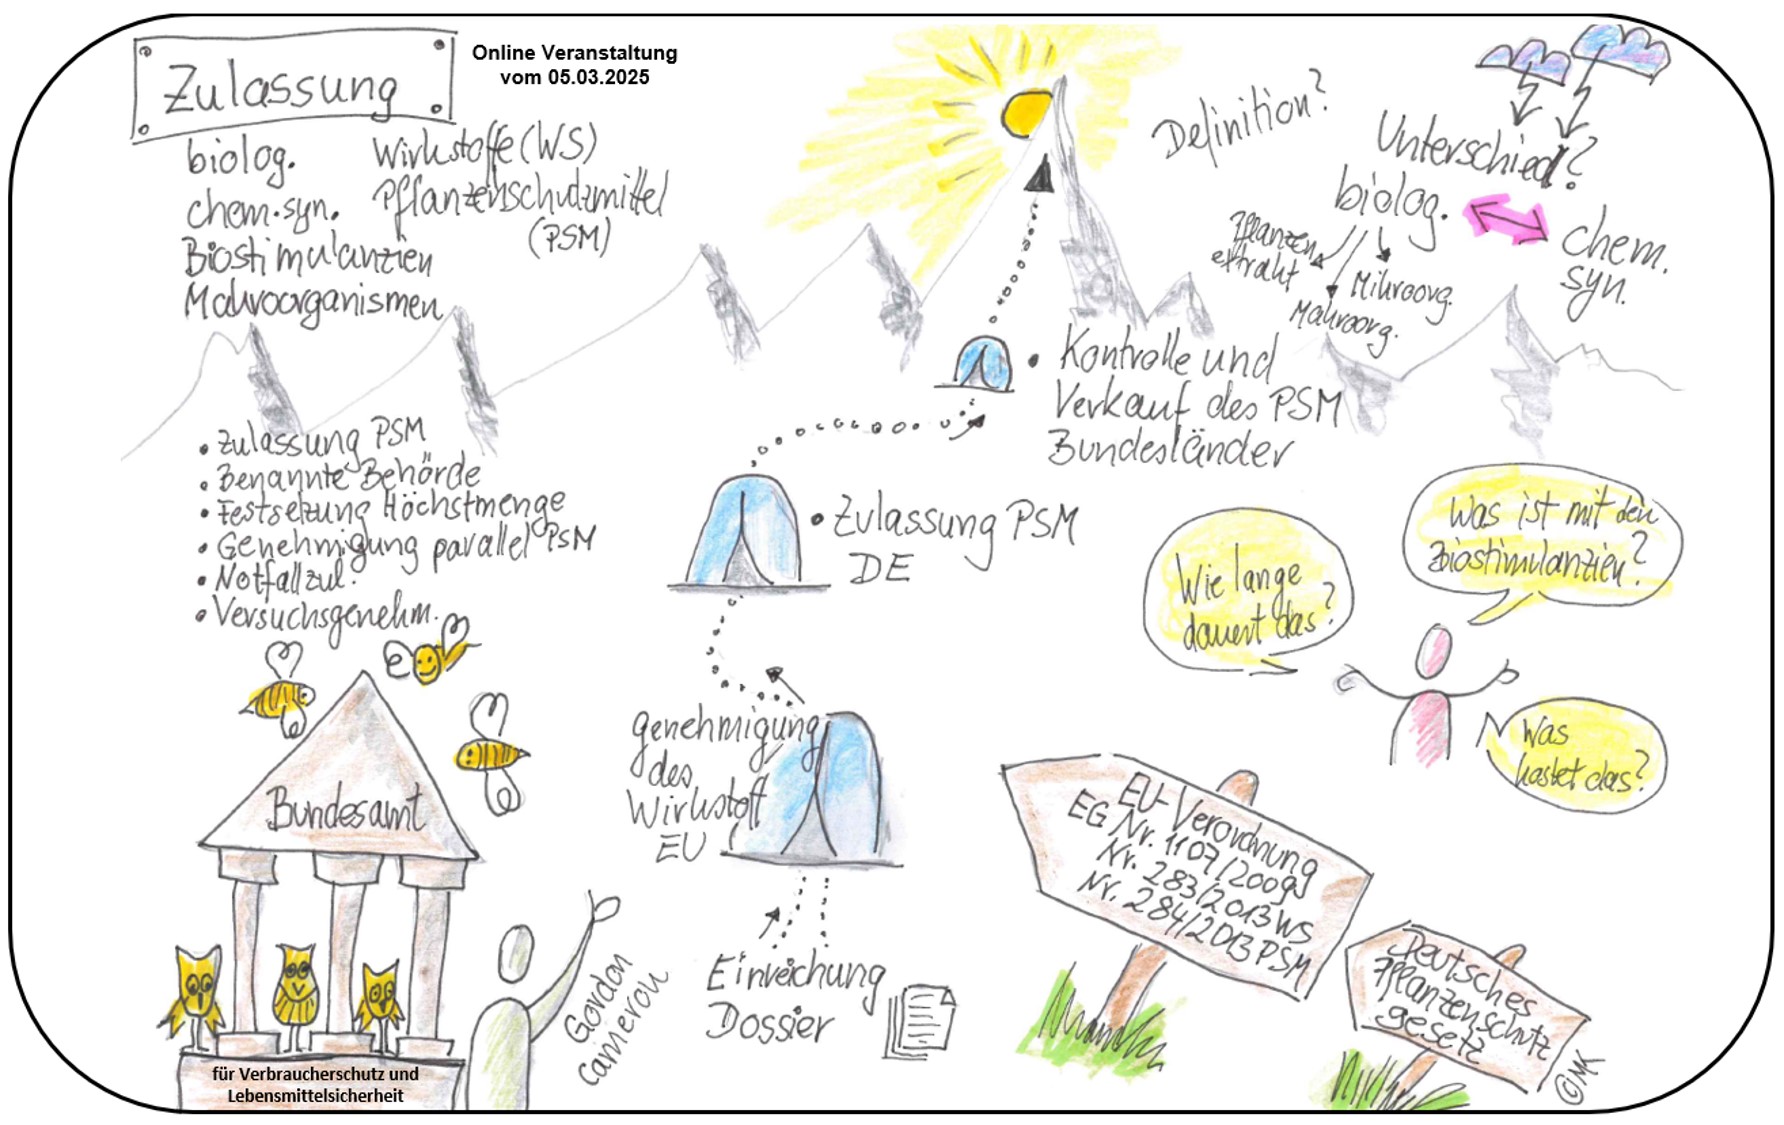 Zulassung
Online Veranstaltung
vom 05.03.2025
biolog.
chem.syn.
Biostimulanzien
Makroorganismen
Wirkstoffe (WS)
Pflanzenschutzmittel
(PSM)
Definition?
Unterschied?
biolog.
chem.
syn.
Pflanzen
extrakt
Mikroorg.
Makroorg.
• Kontrolle und
Verkauf des PSM
Bundesländer
• Zulassung PSM
• Benannte Behörde
• Festsetzung Höchstmenge
• Genehmigung parallel PSM
• Notfallzul.
• Versuchsgenehm.
• Zulassung PSM
DE
Wie lange
dauert das?
Was ist mit den
Biostimulanzien?
Was
kostet das?
genehmigung
des
Wirkstoff
EU
Bundesamt
für Verbraucherschutz und
Lebensmittelsicherheit
Gordon
Cameron
Einreichung
Dossier
EU-Verordnung
EG Nr. 1107/2009
Nr. 283/2013 WS
Nr. 284/2013 PSM
Deutsches
Pflanzenschutz
gesetz
©MK